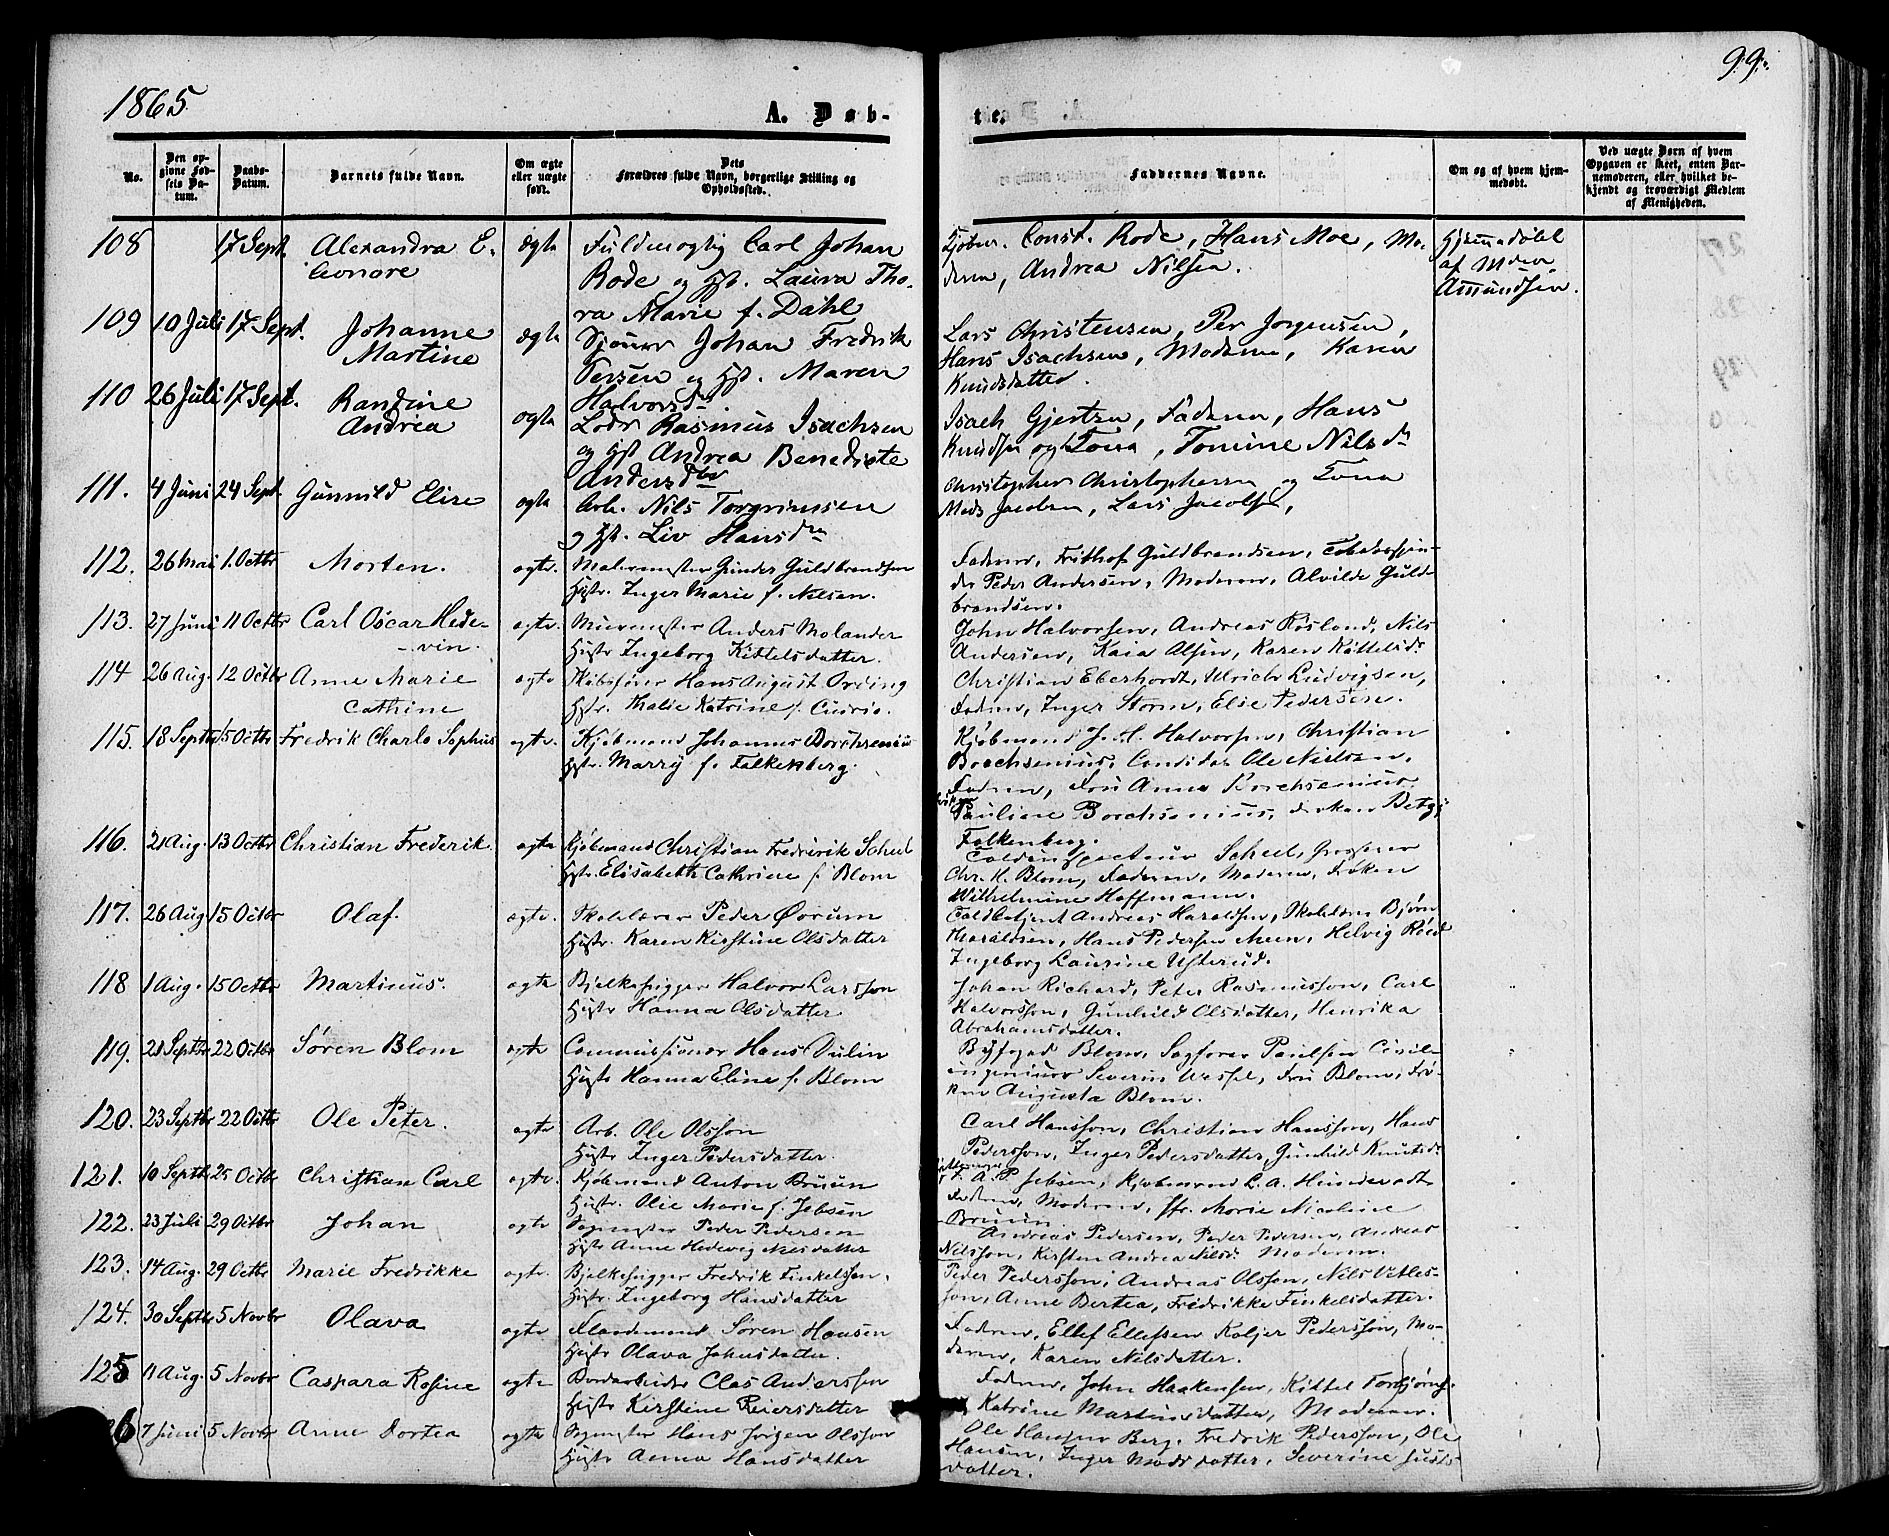 1865
99.
A. Døb-
te.
No.
Den op-
givne Fød-
sels Da-
tum.
Daabs-
Datum.
Barnets fulde Navn.
Om ægte
eller uægte
født.
Dets
Forældres fulde Navn, borgerlige Stilling og
Opholdssted.
Faddernes Navne.
Om og af hvem hjem-
medøbt.
Ved uægte Børn af hvem
Opgaven er skeet, enten Bar-
nemoderen, eller hvilket be-
kjendt og troværdigt Medlem
af Menigheden.
108 17 Sept. Alexandra E- ægte Fuldmægtig Carl Johan Const. Rode, Hans Moe, Mo- Hjemmedøbt
leonore Rode og Hst. Laura Tho- deren, Andrea Nilsen. af
ra Marie f. Dahl Amundsen.
109 10 Juli 17 Sept. Johanne ægte Johan Fredrik Lars Christensen, Per Jørgensen,
Martine og Hst. Maren Hans Isachsen, Moderen, Karen
Halvorsd. Knudsdatter.
110 26 Juli 17 Sept. Randine ægte Lods Rasmus Isachsen Isach Gjertsen, Faderen, Hans
Andrea og Hst Andrea Benedicte Knudsen og Kona, Tomine Nilsd
Andersdtr
111. 4 Juni 24 Sept. Gunnild Elise ægte Arb. Nils Torgrimsen Christopher Christophersen og Kona
og Hst. Liv Hansd Mads Jacobsen, Lars Jacobs
112. 26 Mai 1. Octbr Morten. ægte. Gunder Guldbrandsen Faderen, Frithof Guldbrandsen,
Hustr. Inger Marie f. Nilsen. Peder Andersen, Moderen, Alvilde Guld-
brandsen.
113. 27 Juni 11 Octbr Carl Oscar Hede- ægte. Muremester Anders Molander John Halvorsen, Andreas Røslund, Nils
-vin. Hustr Ingeborg Kittelsdatter. Andersen, Kaia Olsen, Karen Kittelsd.
114 26 Aug. 12 Octbr Anne Marie ægte Skibsfører Hans August Ording Christian Eberhardt, Ulrich Ludvigsen,
Cathine Hstr. Thalie Katrine f. Faderen, Inger Storm, Else Pedersen.
115. 18 Septbr 15 Octbr Fredrik Charlo Sophus ægte. Kjøbmand Johannes Borchsenius Kjøbmand J. H. Halvorsen, Christian
Hstr. Marry f. Falkenberg. Borchsenius, Candidat Ole Nielsen,
Faderen, Fru Anna Borchsenius
Pauline Borchsenius, Betzy
Falkenberg.
116. 21 Aug. 13 Octbr Christian Frederik. ægte Kjøbmand Christian Frederik Scheel Toldinspecteur Scheel,
Hstr. Elisabeth Cathrine f. Blom Chr. H. Blom, Faderen, Moderen, Frøken
Wilhelmine Hoffmann.
117. 26 Aug 15 Octbr Olaf. ægte. Skolelærer Peder Ørum Toldbetjent Andreas Haraldsen, Bjørn
Hustr. Karen Kirstine Olsdatter Haraldsen, Hans Pedersen Meen, Helvig Røed
Ingeborg Laurine Usterud.
118 1 Aug. 15 Octbr Martinus. ægte Bjelkehugger Halvor Larsson Johan Richard, Peter Rasmusson, Carl
Hustr Hanna Olsdatter Halvorsson, Gunhild Olsdatter, Henrika
Abrahamsdatter.
119. 21 Septbr 22 Octbr Søren Blom ægte Commissionær Hans Dulin Byfoged Blom, Sagfører Paulsen Civil-
Hustr Hanna Eline f. Blom ingeniør Severin Wessel, Fru Blom, Frø-
ken Augusta Blom.
120. 23 Septbr 22 Octbr Ole Peter. ægte Arb. Ole Olsson Carl Hansson, Christian Hansson, Hans
Hustr Inger Pedersdatter. Pedersson, Inger Pedersdatter, Gunhild Knutsd.
121. 10 Septbr 25 Octbr Christian Carl ægte. Kjøbmand Anton Bruun A. P. Jebsen, Kjøbmand L. A.
Hustr. Olie Marie f. Jebsen Faderen, Moderen, Fr. Marie Nicoline
Bruun
122. 23 Juli 29 Octbr Johan ægte Peder Pedersen Andreas Pedersen, Peder Pedersen, Andreas
Hustr Anne Hedevig Nilsdatter Nilsson, Kirsten Andrea Nilsd. Moderen.
123. 14 Aug. 29 Octbr Marie Fredrikke ægte. Bjelkehugger Fredrik Finkelsen. Peder Pedersson, Andreas Olsson, Nils Vetles-
Hustr. Ingeborg Hansdatter son, Anne Bertea, Fredrikke Finkelsdatter.
124. 30 Septbr 5 Novbr Olava ægte Søren Hansen Faderen, Ellef Ellefsen Pedersson, Mo-
Hustr Olava Johnsdatter deren, Karen Nilsdatter.
125 11 Aug. 5 Novbr Caspara Rosine ægte Clas Andersson Faderen, John Haakensen, Kittel Torbjørns.
Hustr Kirstine Reiersdatter Katrine Martinsdatter, Moderen.
6 7 Juni 5 Novbr Anne Dortea ægte Hans Jørgen Olsson Ole Hansen Berg, Fredrik Pedersson, Ole
Hustr Anna Hansdatter Hansen, Inger Madsdatter, Severine
datter.